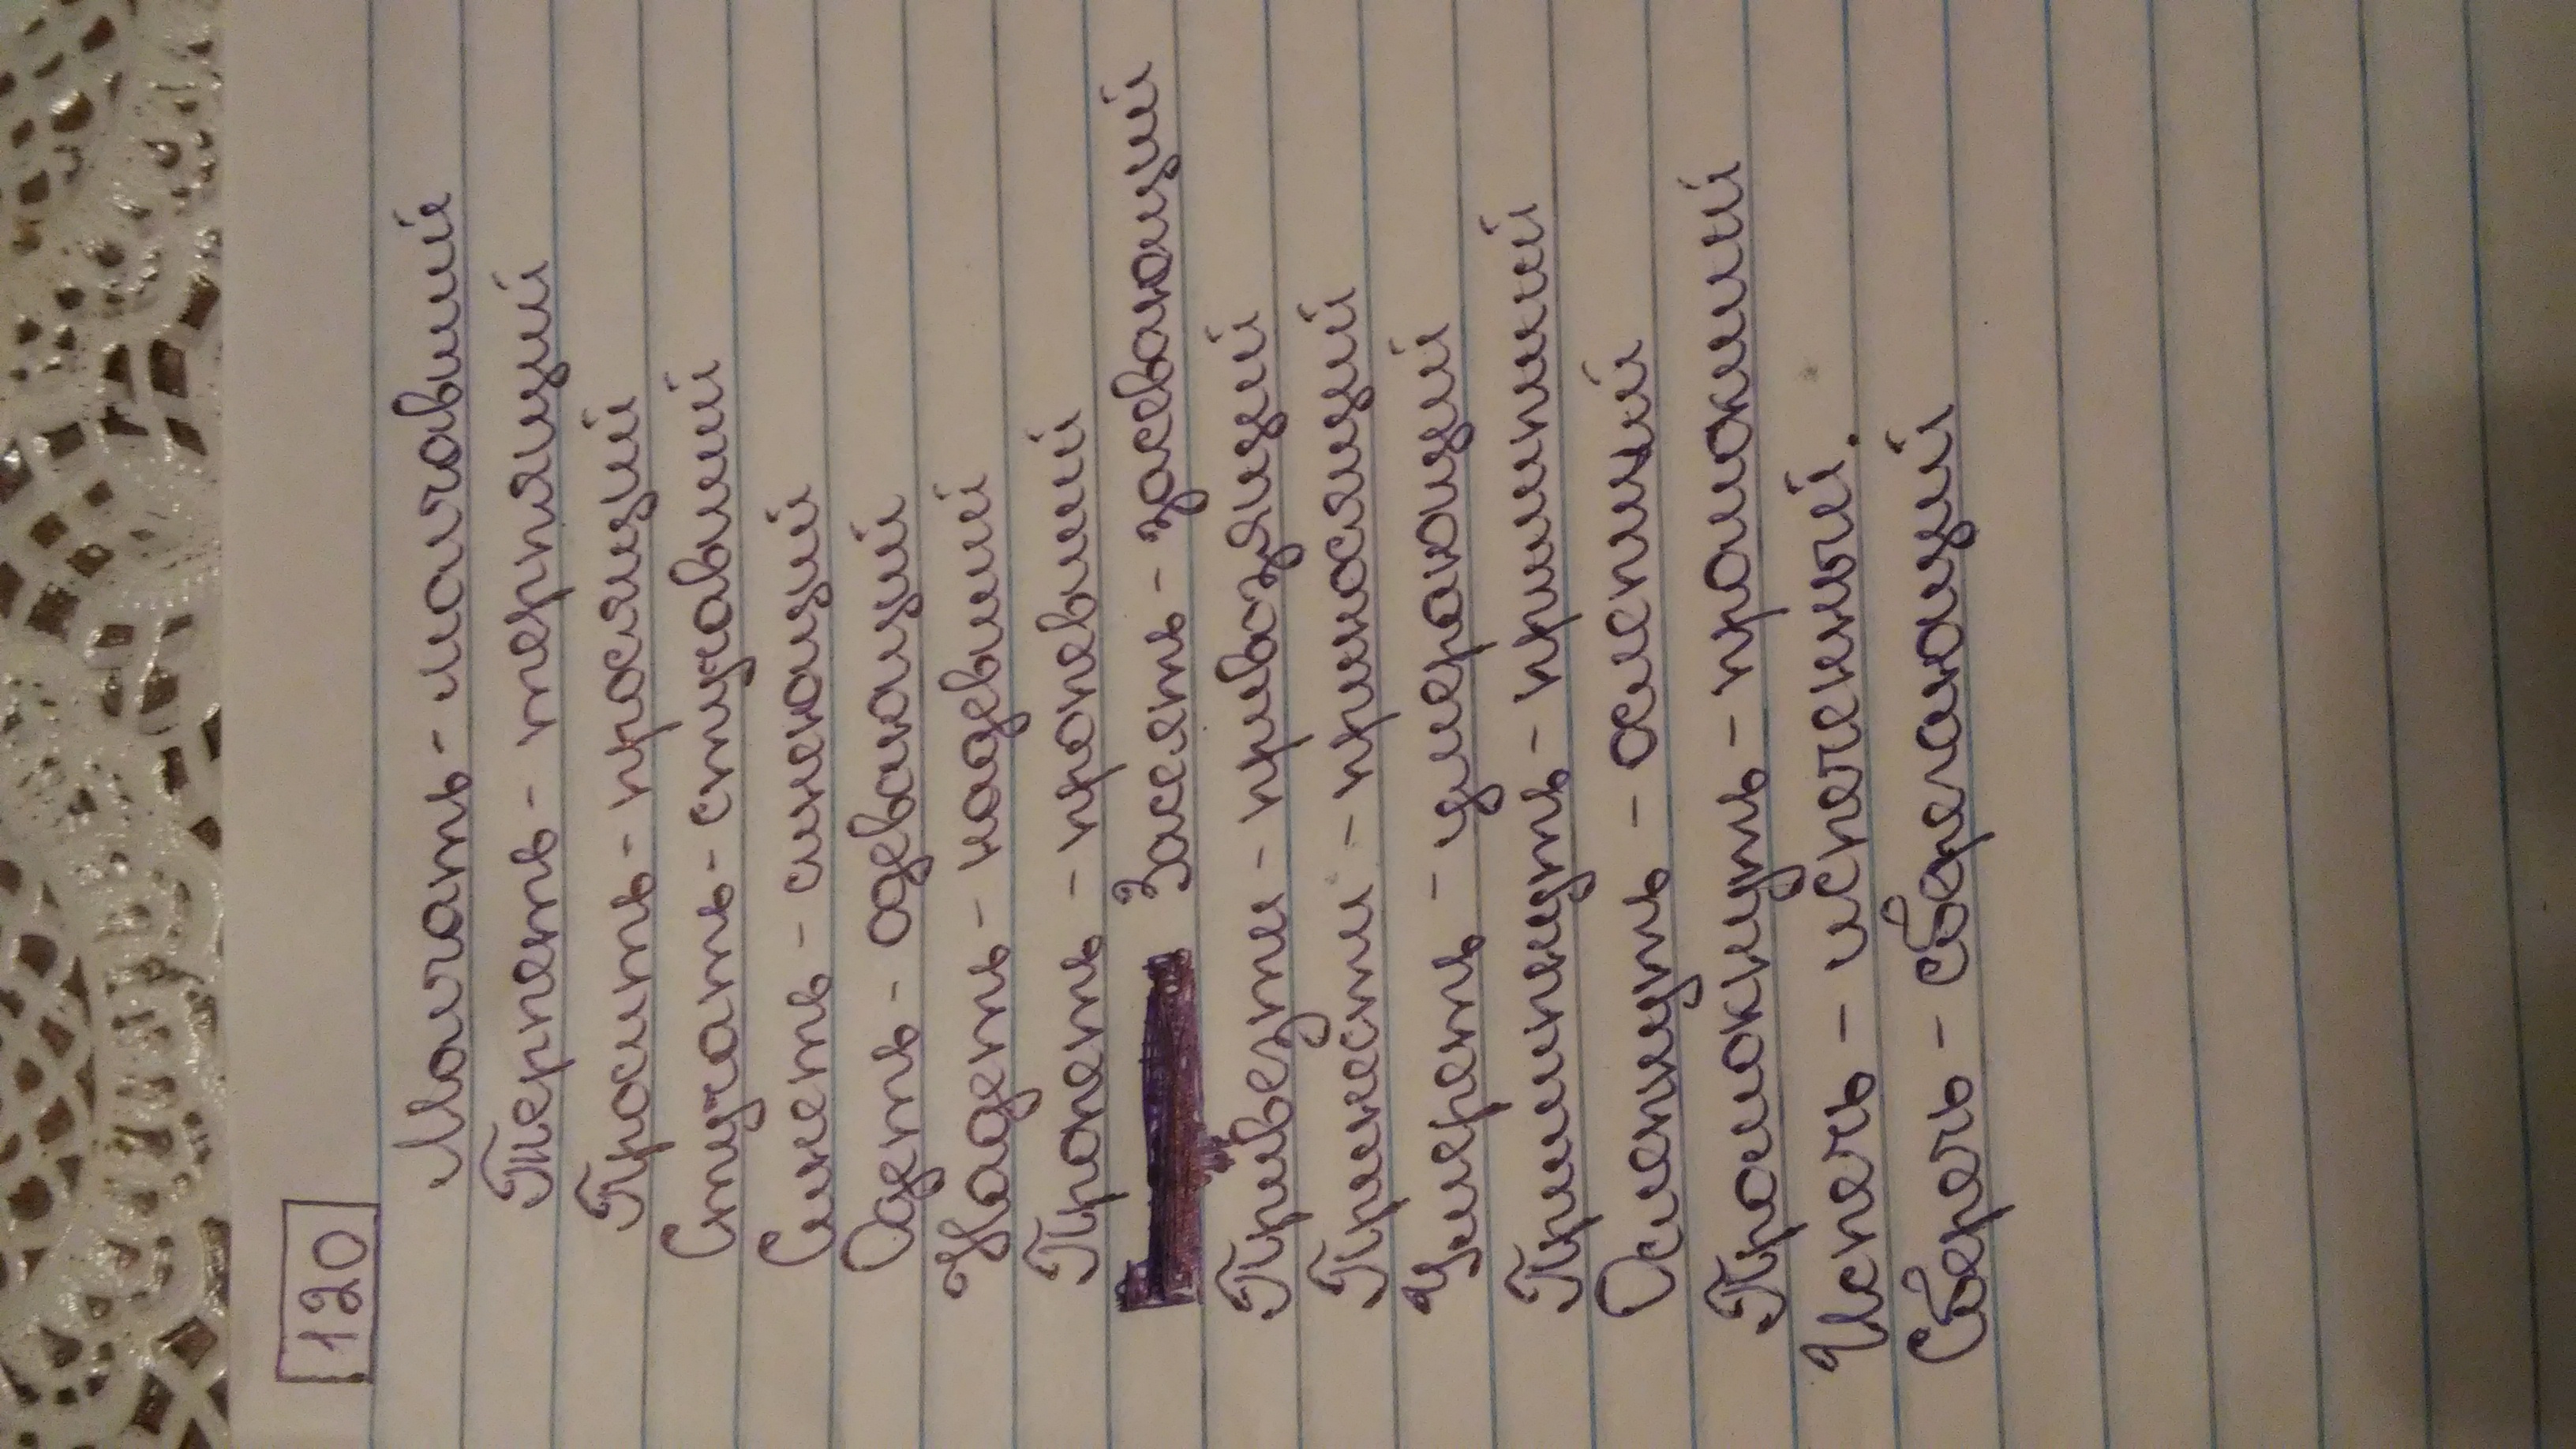 120
Молчать - молчавший
Терпеть - терпящий
Просить - просящий
Стучать - стучавший
Синеть - синеющий
Одеть - одевающий
Надеть - надевший
Пропеть - пропевший
Засеять - засевающий
Привезти - привозящий
Принести - приносящий
Умереть - умерающий
Прилипнуть - прилипший
Ослепнуть - ослепший
Промокнуть - промокший
Испечь - испеченный.
Сберечь - сберегающий